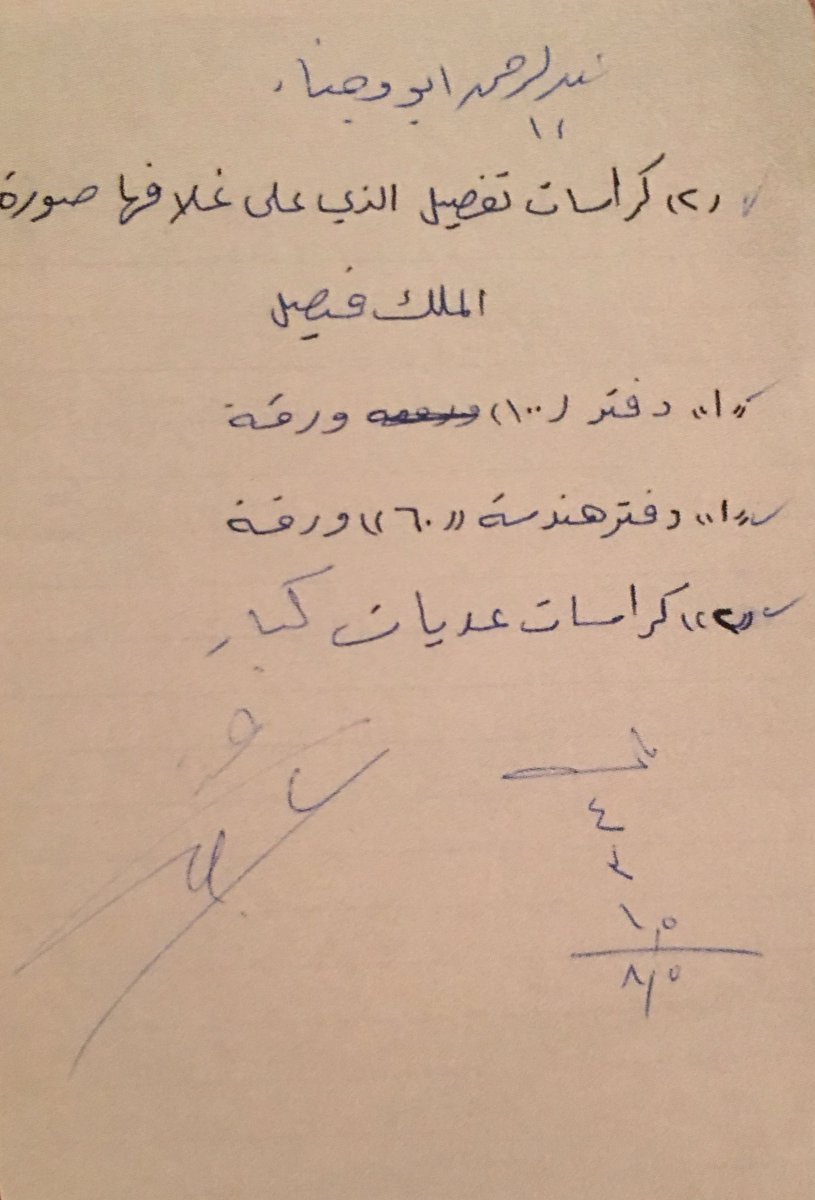 عبدالرحمن ابو وجناء
(٢) كراسات تفصيل الذي على غلافها صورة
الملك فيصل
«١» دفتر (١٠٠) ورقة
«١» دفتر هندسة «٦٠» ورقة
«٢» كراسات عديات كبار
٤
١,٥
٨,٥